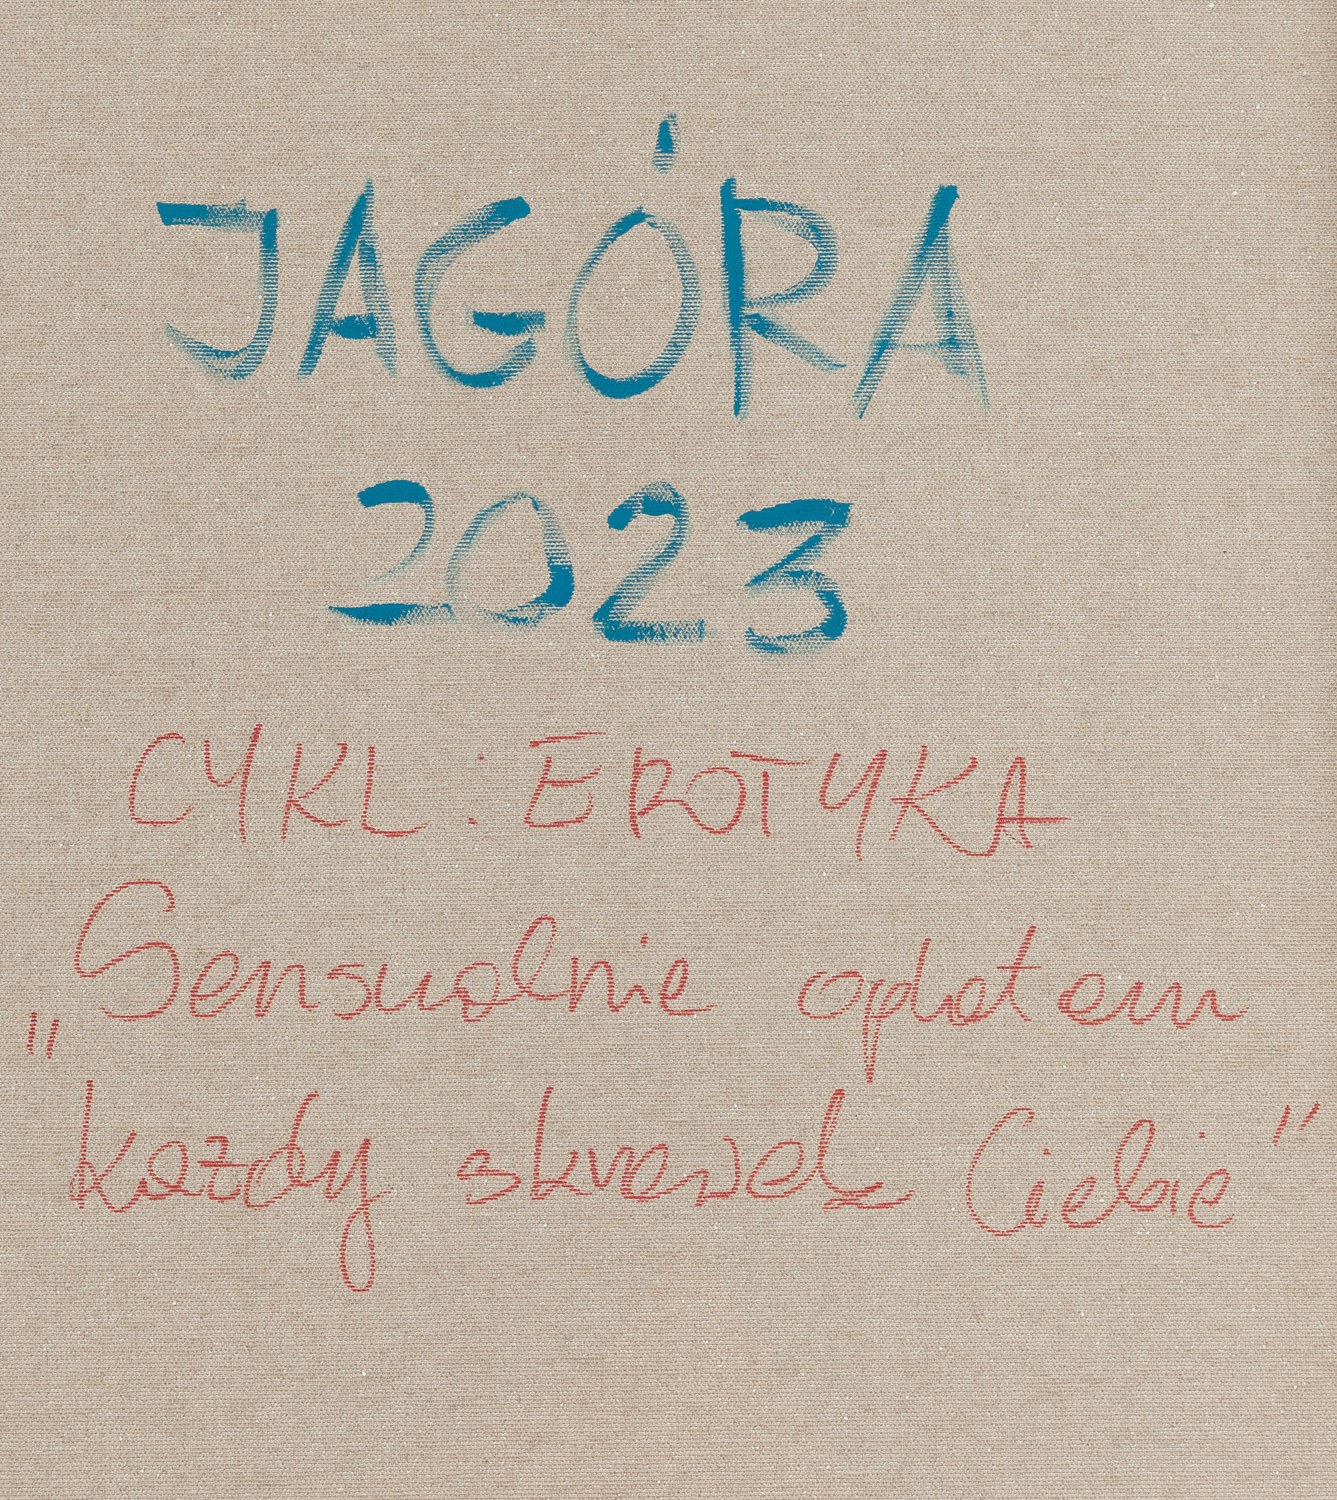 JAGÓRA
2023
CYKL: EROTYKA
„Sensualnie oplotem
każdy skrawek Ciebie"